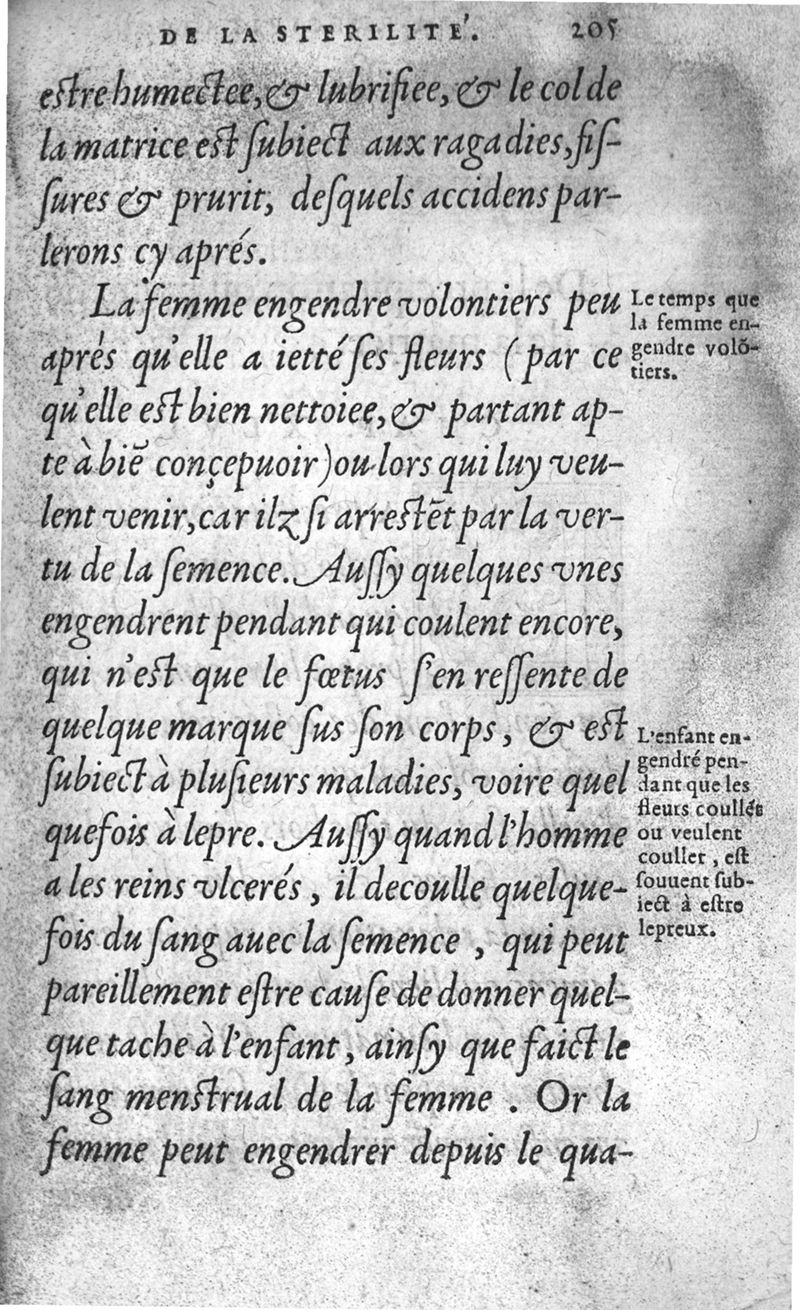 DE LA STERILITE'. 205
eſtre humectee, & lubrifiee, & le col de
la matrice eſt ſubiect aux ragadies, fiſ-
ſures & prurit, deſquels accidens par-
lerons cy aprés.
La femme engendre volontiers peu
aprés qu'elle a ietté ſes fleurs (par ce
qu'elle eſt bien nettoiee, & partant ap-
te à biē conçepuoir) ou lors qui luy veu-
lent venir, car ilz ſi arreſtēt par la ver-
tu de la ſemence. Auſſy quelques vnes
engendrent pendant qui coulent encore,
qui n'eſt que le fœtus ſ'en reſſente de
quelque marque ſus ſon corps, & eſt
ſubiect à pluſieurs maladies, voire quel
quefois à lepre. Auſſy quand l'homme
a les reins vlcerés, il decoulle quelque-
fois du ſang auec la ſemence, qui peut
pareillement eſtre cauſe de donner quel-
que tache à l'enfant, ainſy que faict le
ſang menſtrual de la femme. Or la
femme peut engendrer depuis le qua-
Le temps que
la femme en-
gendre volō-
tiers.
L'enfant en-
gendré pen-
dant que les
fleurs coullēt
ou veulent
couller, eſt
ſouuent ſub-
iect à eſtre
lepreux.